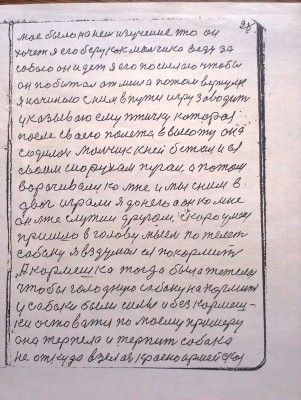 28
мое было на нем изучение то он
хочет я его беру как мальчика веду за
собою он идет я его посылаю чтобы
он побытал от мина а потом вернулся
я начинаю с ним в пути игру заводить
указываю ему птичку которая
после своего полета в высоту она
садилась мальчик к ней бегом и ея
своим шорухам пугаи, а потом
ворачивали ко мне и мы с ним в
двох играли я до него а он ко мне
он мне служил другом, Скоро у мину
пришло в голову мысль по телеге
собаку я вздумал ея покормить
А кормешка тогда была тежела
чтобы голодную собаку на кормит
у собаки были силы и без кормеш-
ки оставатся по моему примеру
она терпела и терпит собака
не откуда взелая красноармейская